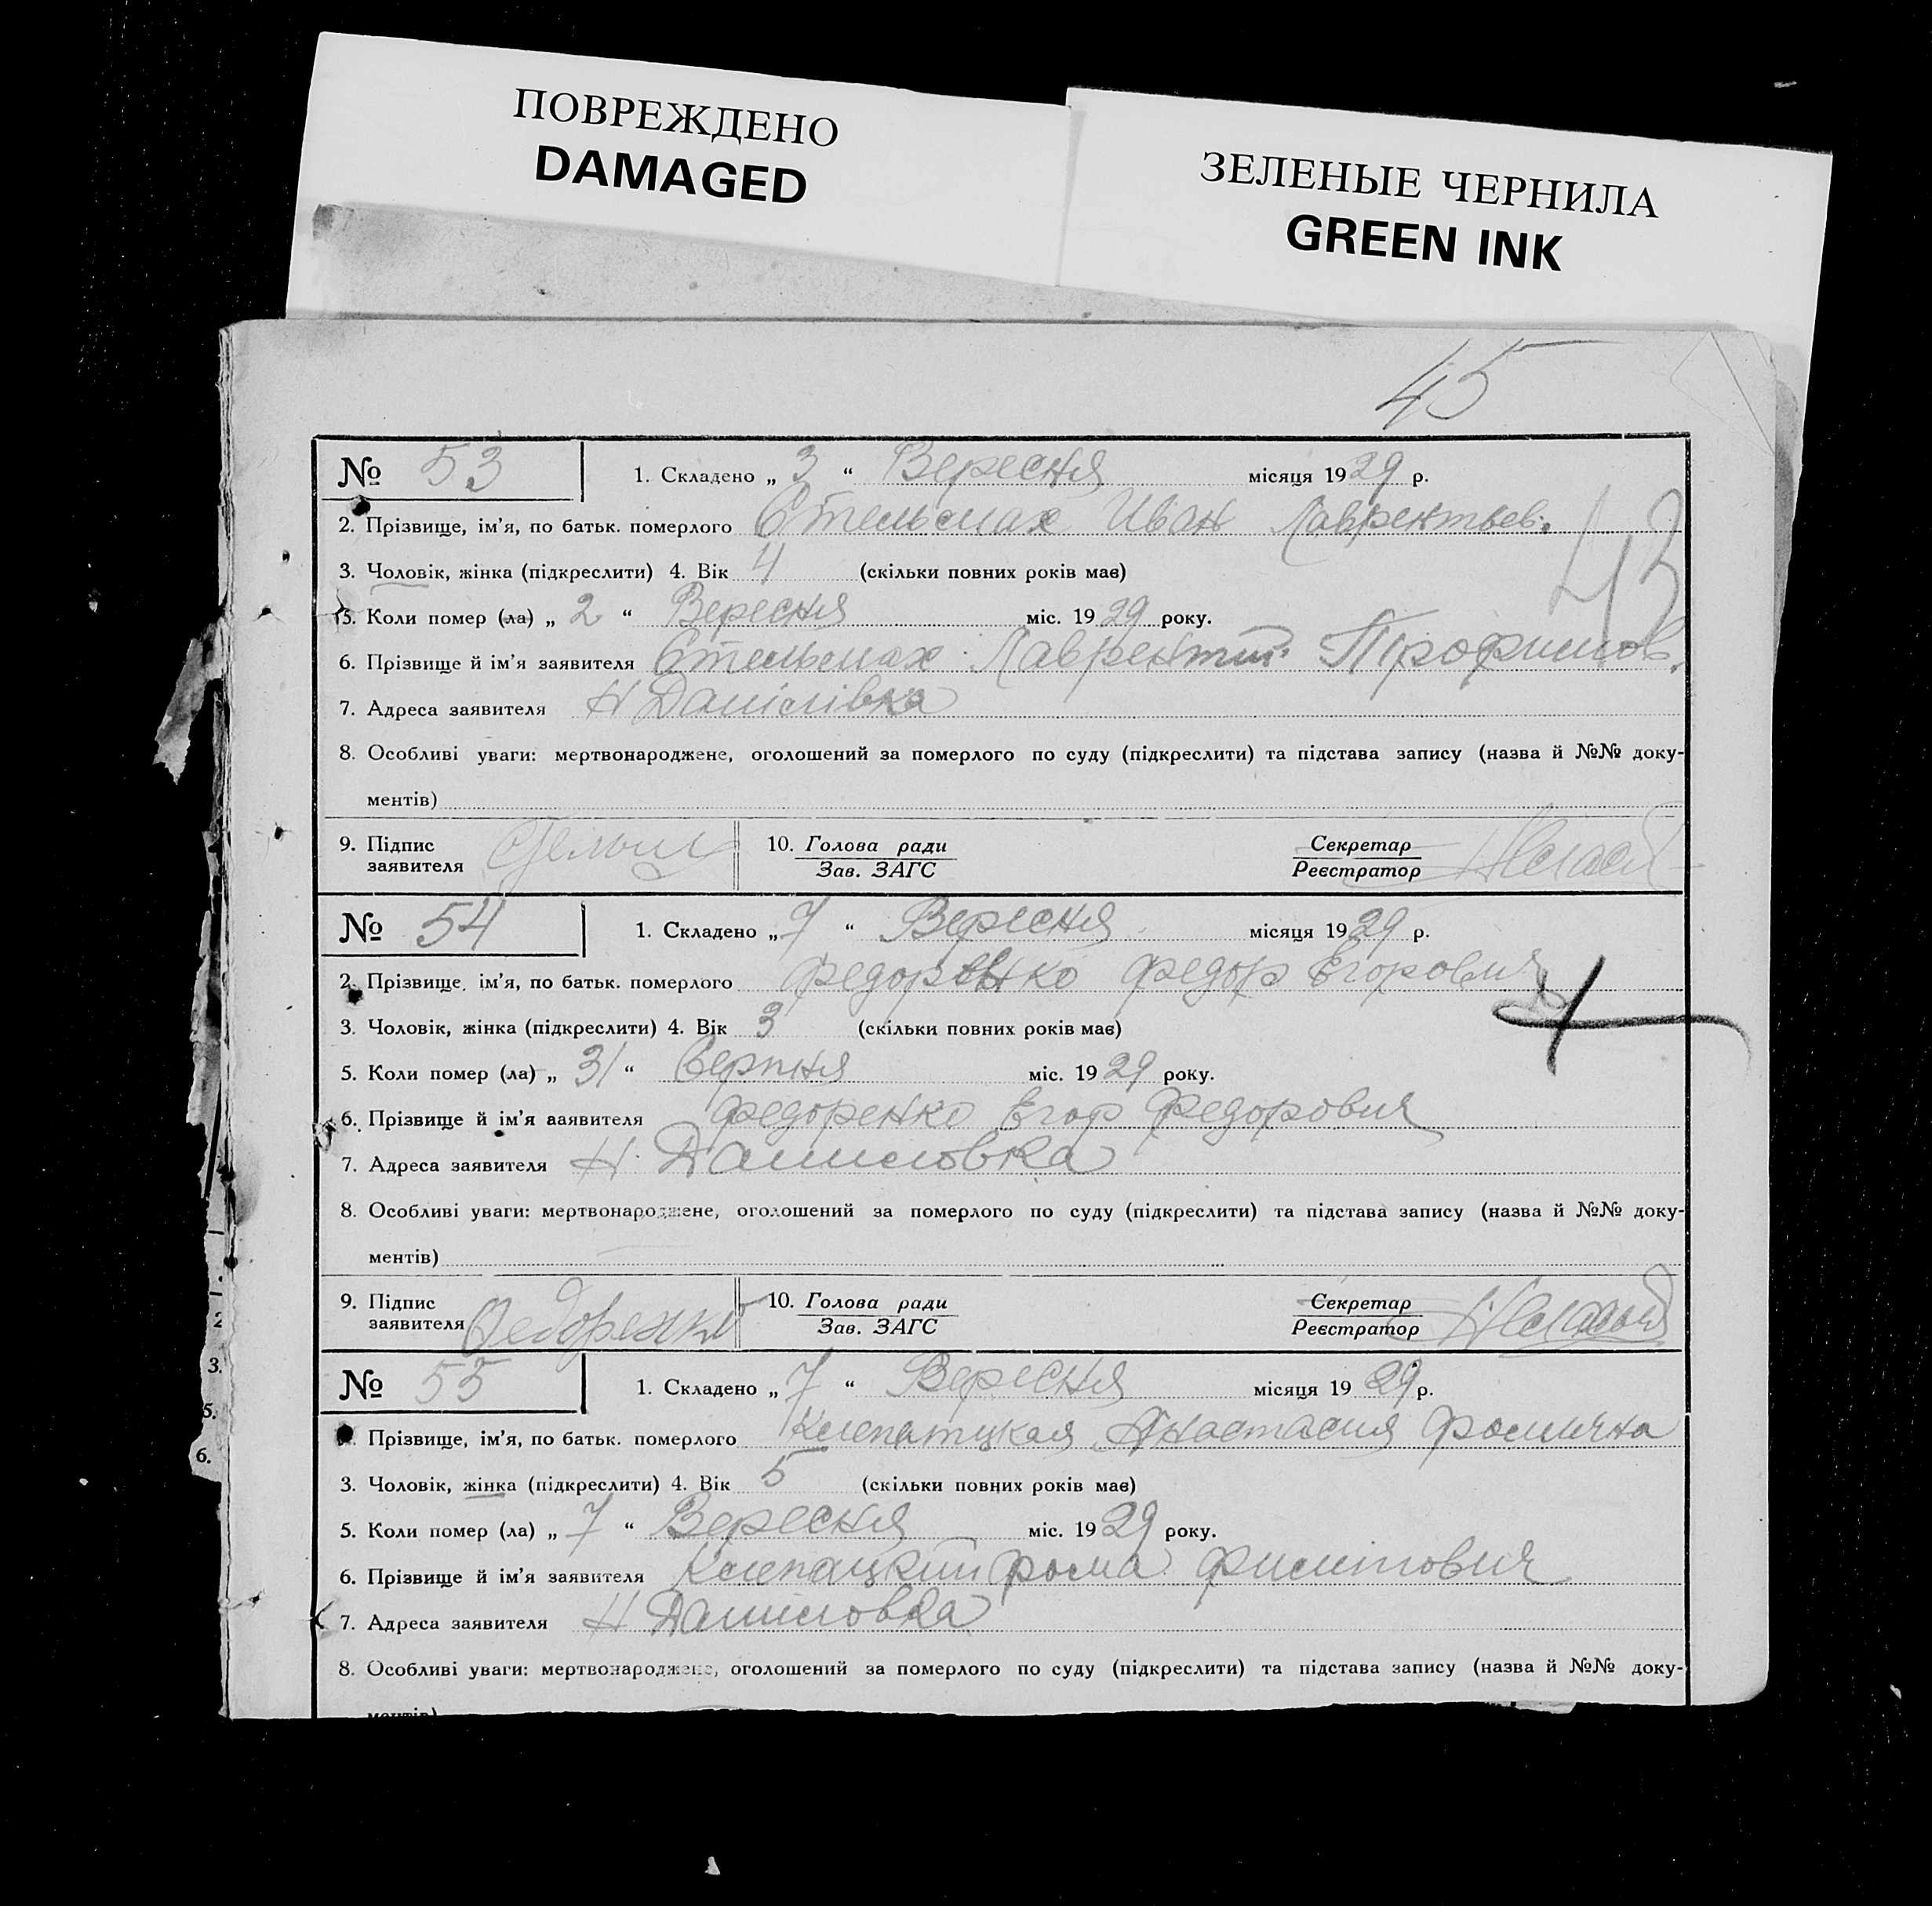 ПОВРЕЖДЕНО
DAMAGED
ЗЕЛЕНЫЕ ЧЕРНИЛА
GREEN INK
45
№ 53 1. Складено „ 3 “ Вересня місяця 1929 р.
2. Прізвище, ім'я, по батьк. померлого Стельмах Иван Лаврентьев.
43
3. Чоловік, жінка (підкреслити) 4. Вік 4 (скільки повних років має)
5. Коли помер (ла) „ 2 “ Вересня міс. 1929 року.
6. Прізвище й ім'я заявителя Стельмах Лаврентий Трофимов.
7. Адреса заявителя Н Данілівка
8. Особливі уваги: мертвонароджене, оголошений за померлого по суду (підкреслити) та підстава запису (назва й №№ доку-
ментів)
9. Підпис заявителя 10. Голова ради Секретар
Зав. ЗАГС Реєстратор
№ 54 1. Складено „ 7 “ Вересня місяця 1929 р.
2. Прізвище, ім'я, по батьк. померлого Федоренко Федор Егорович
3. Чоловік, жінка (підкреслити) 4. Вік 3 (скільки повних років має)
5. Коли помер (ла) „ 31 “ Серпня міс. 1929 року.
6. Прізвище й ім'я заявителя Федоренко Егор Федорович
7. Адреса заявителя Н. Даниловка
8. Особливі уваги: мертвонароджене, оголошений за померлого по суду (підкреслити) та підстава запису (назва й №№ доку-
ментів)
9. Підпис заявителя Федоренко 10. Голова ради Секретар
Зав. ЗАГС Реєстратор
№ 55 1. Складено „ 7 “ Вересня місяця 1929 р.
Прізвище, ім'я, по батьк. померлого Клепатцкая Анастасия Фомична
3. Чоловік, жінка (підкреслити) 4. Вік 5 (скільки повних років має)
5. Коли помер (ла) „ 7 “ Вересня міс. 1929 року.
6. Прізвище й ім'я заявителя Клепацкий Фома Филипович
7. Адреса заявителя Н Даниловка
8. Особливі уваги: мертвонароджене, оголошений за померлого по суду (підкреслити) та підстава запису (назва й №№ доку-
ментів)
2
3.
5.
6.